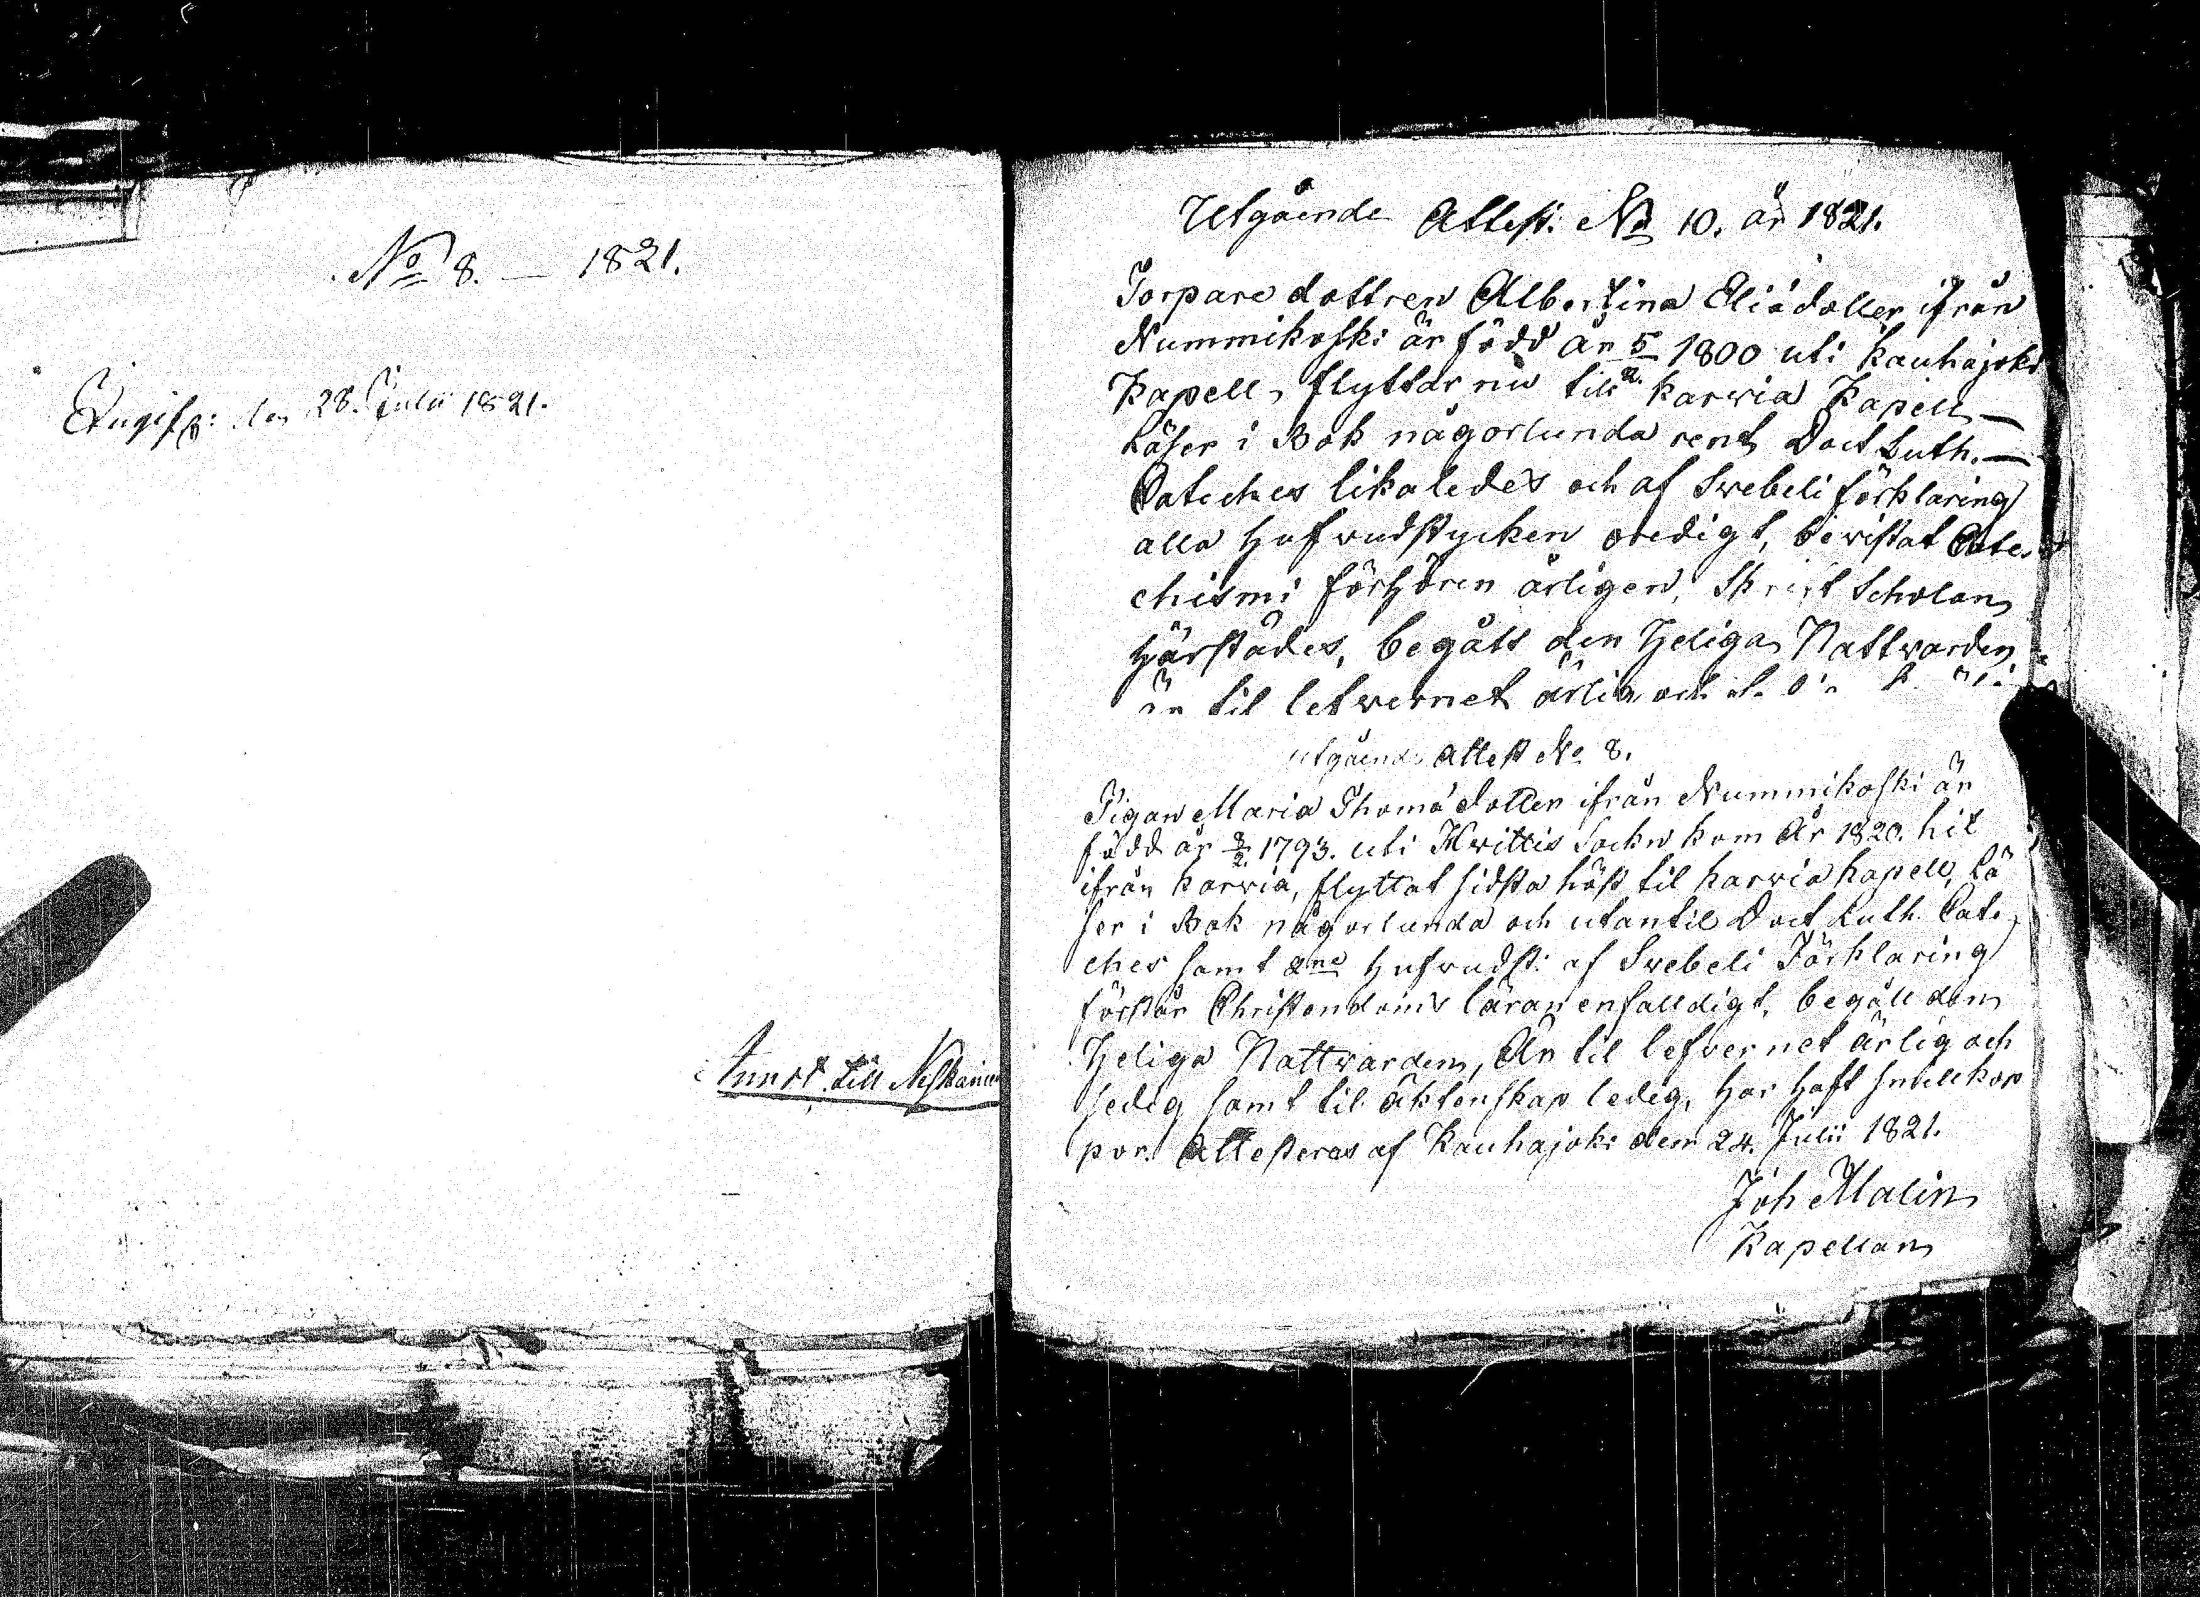 No 8. — 1821.
Angifv: den 28. Julii 1821.
till
Utgående Attest: No 10. år 1821.
Torpare dottren Albertina Eliædotter ifrån
Nummikoski är född år 5/2 1800 uti Kauhajoki
Kapell, flyttar nu till Karvia Kapell —
Läser i Bok någorlunda rent Doct Luth. —
Cateches likaledes och af Svebeli förklaring
alla Hufvudstycken redigt, bevistat Cate-
chismi förhören årligen, Skrift Scholan
härstädes, begått den Heliga Nattvarden
är til lefvernet ärlig och
utgående Attest No 8.
Pigan Maria Thomædotter ifrån Nummikoski är
född år 3/2 1793. uti Hvittis Sockn kom År 1820. hit
ifrån Karvia, flyttat sidsta höst til Karvia Kapell, Lä
ser i Bok någorlunda och utantil Doct Luth. Cate
ches samt 2ne Hufvudst: af Svebeli Förklaring
förstår Christendoms läran enfalldigt, begått den
Heliga Nattvarden, Är til lefvernet ärlig och
sedig samt til äktenskap ledig, har haft smittkop
por. Attesteras af Kauhajoki den 24. Julii 1821.
Joh Malin
Kapellan